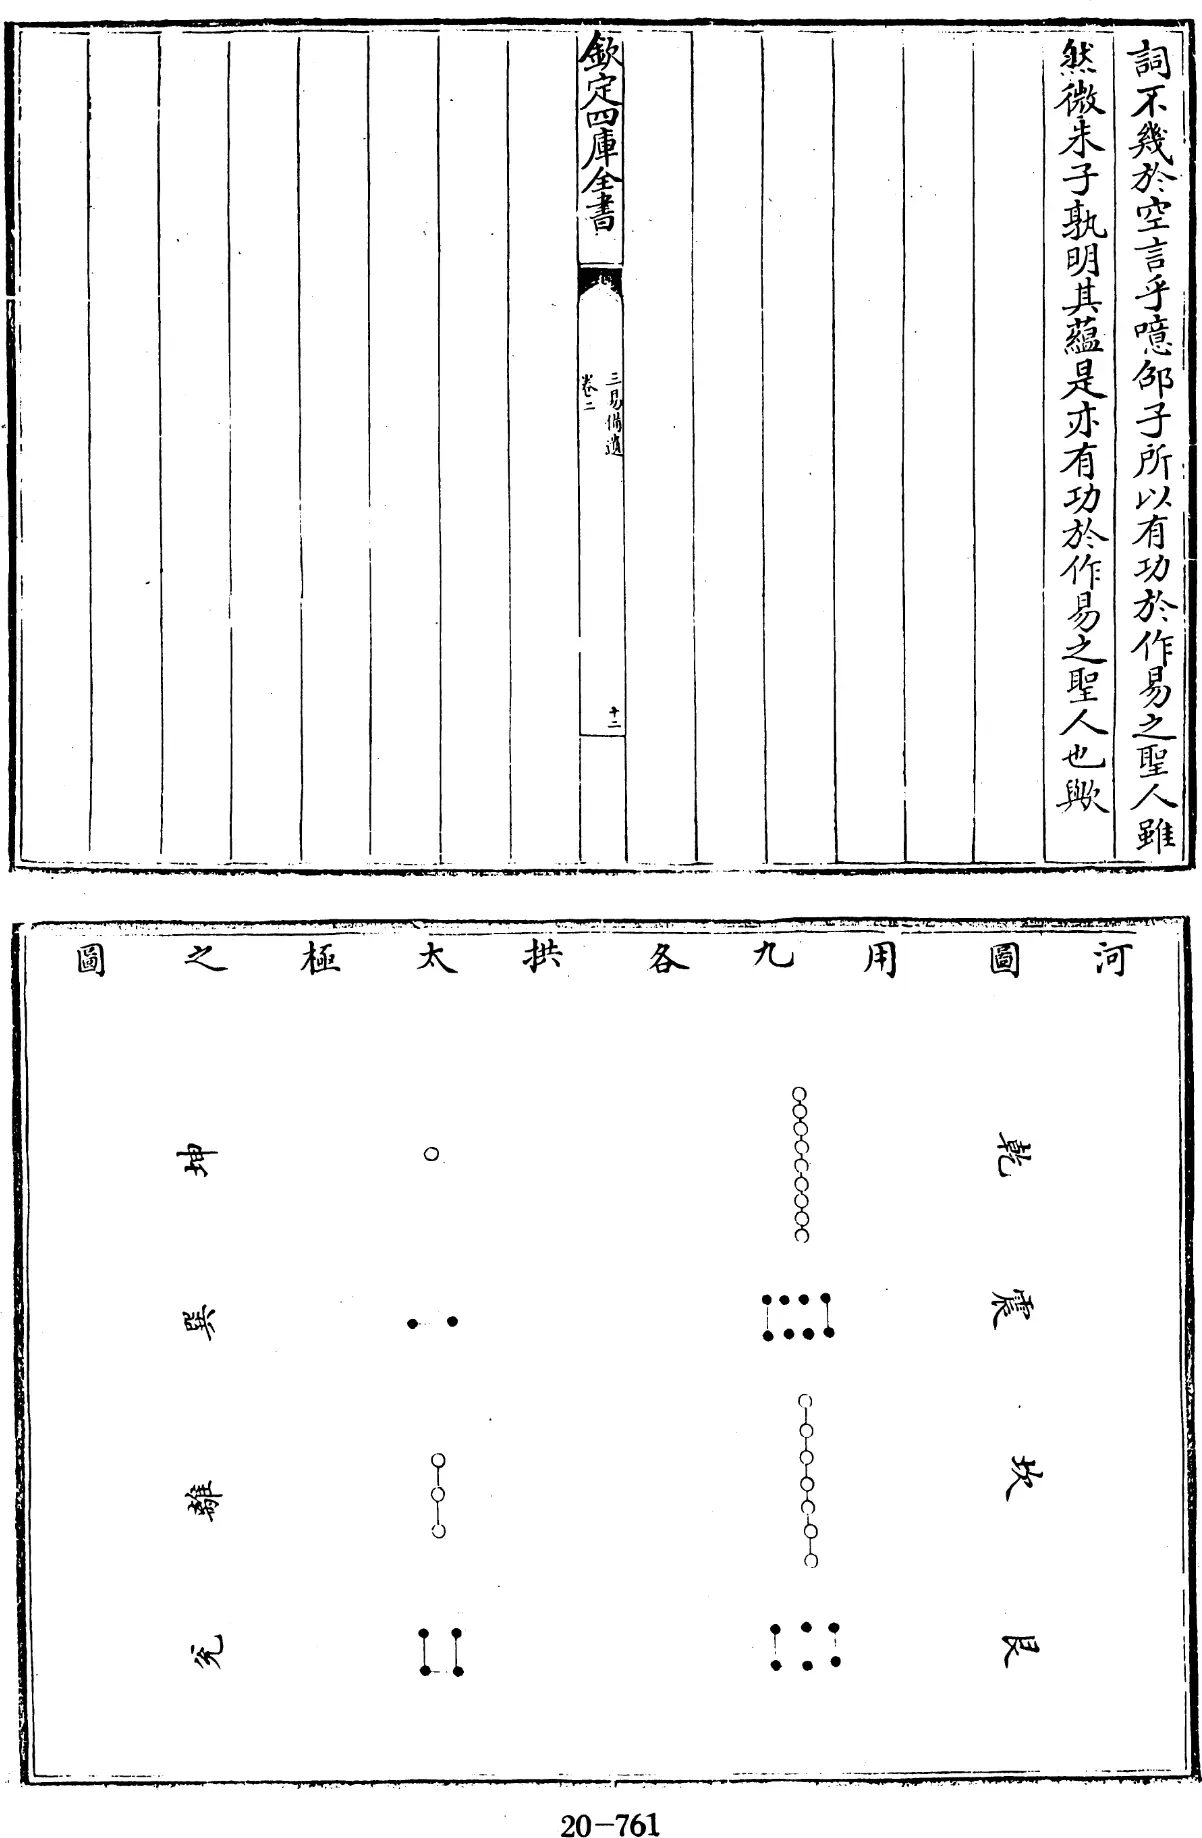 詞不幾於空言乎噫邵子所以有功於作易之聖人雖
然微朱子孰明其蘊是亦有功於作易之聖人也歟
欽定四庫全書
三易備遺
卷二
十二
河圖用九各拱太極之圖
乾
坤
震
巽
坎
離
艮
兌
20-761